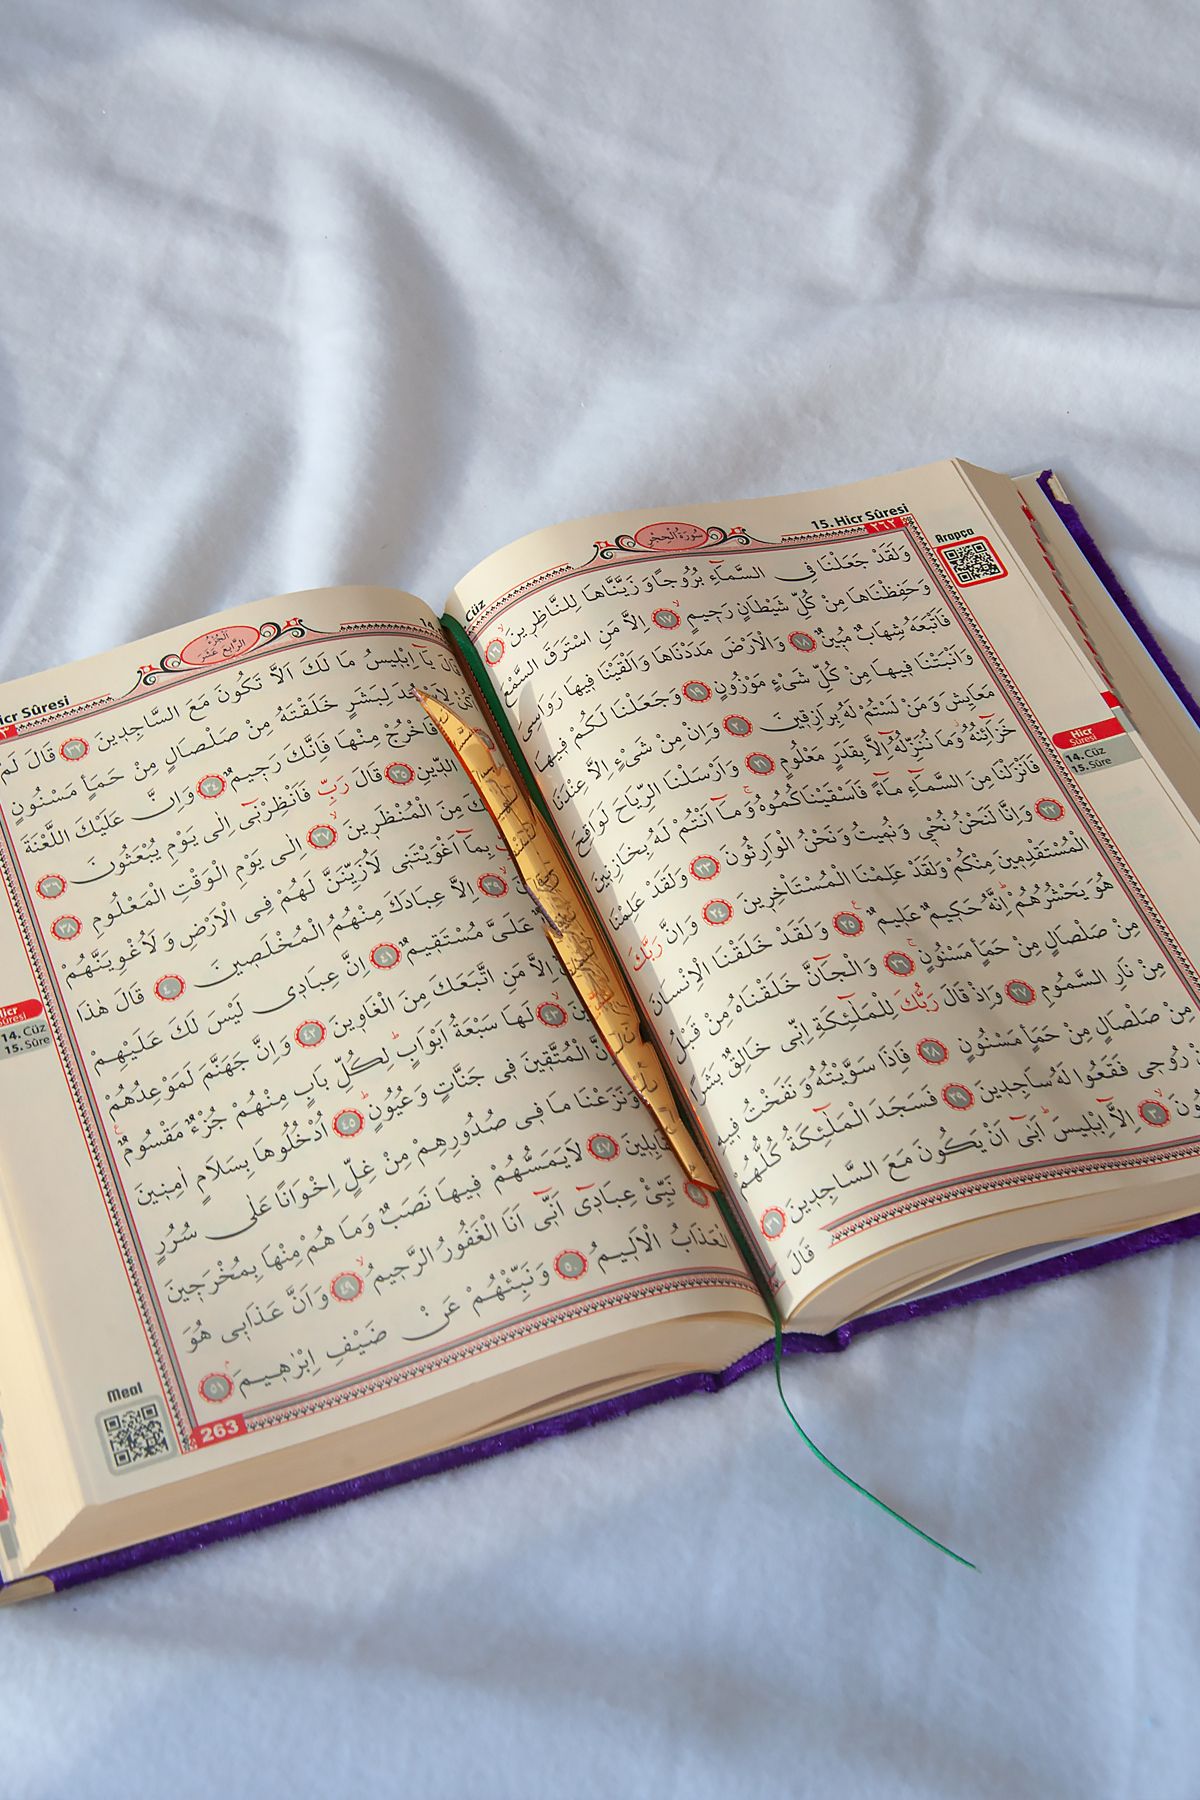 15. Hicr Sûresi
٢٦٢
سُورَةُ الْحِجْرِ
Cüz
Arapça
وَلَقَدْ جَعَلْنَا فِي السَّمَٓاءِ بُرُوجًا وَزَيَّنَّاهَا لِلنَّاظِرِينَ ﴿١٦﴾
وَحَفِظْنَاهَا مِنْ كُلِّ شَيْطَانٍ رَجِيمٍ ﴿١٧﴾ اِلَّا مَنِ اسْتَرَقَ السَّمْعَ
فَاَتْبَعَهُ شِهَابٌ مُبِينٌ ﴿١٨﴾ وَالْاَرْضَ مَدَدْنَاهَا وَاَلْقَيْنَا فِيهَا رَوَاسِيَ
وَاَنْبَتْنَا فِيهَا مِنْ كُلِّ شَيْءٍ مَوْزُونٍ ﴿١٩﴾ وَجَعَلْنَا لَكُمْ فِيهَا
مَعَايِشَ وَمَنْ لَسْتُمْ لَهُ بِرَازِقِينَ ﴿٢٠﴾ وَاِنْ مِنْ شَيْءٍ اِلَّا عِنْدَنَا
خَزَٓائِنُهُ وَمَا نُنَزِّلُهُٓ اِلَّا بِقَدَرٍ مَعْلُومٍ ﴿٢١﴾ وَاَرْسَلْنَا الرِّيَاحَ لَوَاقِحَ
فَاَنْزَلْنَا مِنَ السَّمَٓاءِ مَٓاءً فَاَسْقَيْنَاكُمُوهُ وَمَٓا اَنْتُمْ لَهُ بِخَازِنِينَ
﴿٢٢﴾ وَاِنَّا لَنَحْنُ نُحْيِ وَنُمِيتُ وَنَحْنُ الْوَارِثُونَ ﴿٢٣﴾ وَلَقَدْ عَلِمْنَا
الْمُسْتَقْدِمِينَ مِنْكُمْ وَلَقَدْ عَلِمْنَا الْمُسْتَاْخِرِينَ ﴿٢٤﴾ وَاِنَّ رَبَّكَ
هُوَ يَحْشُرُهُمْ اِنَّهُ حَكِيمٌ عَلِيمٌ ﴿٢٥﴾ وَلَقَدْ خَلَقْنَا الْاِنْسَانَ
مِنْ صَلْصَالٍ مِنْ حَمَأٍ مَسْنُونٍ ﴿٢٦﴾ وَالْجَٓانَّ خَلَقْنَاهُ مِنْ قَبْلُ
مِنْ نَارِ السَّمُومِ ﴿٢٧﴾ وَاِذْ قَالَ رَبُّكَ لِلْمَلٰٓئِكَةِ اِنِّي خَالِقٌ بَشَرًا
مِنْ صَلْصَالٍ مِنْ حَمَأٍ مَسْنُونٍ ﴿٢٨﴾ فَاِذَا سَوَّيْتُهُ وَنَفَخْتُ فِيهِ
مِنْ رُوحِي فَقَعُوا لَهُ سَاجِدِينَ ﴿٢٩﴾ فَسَجَدَ الْمَلٰٓئِكَةُ كُلُّهُمْ
﴿٣٠﴾ اِلَّٓا اِبْلِيسَ اَبٰٓى اَنْ يَكُونَ مَعَ السَّاجِدِينَ ﴿٣١﴾
قَالَ
Hicr
Sûresi
14. Cüz
15. Sûre
Hicr Sûresi
اَلْجُزْءُ
الرَّابِعَ عَشَرَ
قَالَ يَٓا اِبْلِيسُ مَا لَكَ اَلَّا تَكُونَ مَعَ السَّاجِدِينَ ﴿٣٢﴾ قَالَ لَمْ
اَكُنْ لِاَسْجُدَ لِبَشَرٍ خَلَقْتَهُ مِنْ صَلْصَالٍ مِنْ حَمَأٍ مَسْنُونٍ
فَاخْرُجْ مِنْهَا فَاِنَّكَ رَجِيمٌ ﴿٣٤﴾ وَاِنَّ عَلَيْكَ اللَّعْنَةَ
الدِّينِ ﴿٣٥﴾ قَالَ رَبِّ فَاَنْظِرْنِٓي اِلٰى يَوْمِ يُبْعَثُونَ ﴿٣٦﴾
مِنَ الْمُنْظَرِينَ ﴿٣٧﴾ اِلٰى يَوْمِ الْوَقْتِ الْمَعْلُومِ ﴿٣٨﴾
بِمَٓا اَغْوَيْتَنِي لَاُزَيِّنَنَّ لَهُمْ فِي الْاَرْضِ وَلَاُغْوِيَنَّهُمْ
﴿٣٩﴾ اِلَّا عِبَادَكَ مِنْهُمُ الْمُخْلَصِينَ ﴿٤٠﴾ قَالَ هٰذَا
عَلَيَّ مُسْتَقِيمٌ ﴿٤١﴾ اِنَّ عِبَادِي لَيْسَ لَكَ عَلَيْهِمْ
اِلَّا مَنِ اتَّبَعَكَ مِنَ الْغَاوِينَ ﴿٤٢﴾ وَاِنَّ جَهَنَّمَ لَمَوْعِدُهُمْ
﴿٤٣﴾ لَهَا سَبْعَةُ اَبْوَابٍ لِكُلِّ بَابٍ مِنْهُمْ جُزْءٌ مَقْسُومٌ
اِنَّ الْمُتَّقِينَ فِي جَنَّاتٍ وَعُيُونٍ ﴿٤٥﴾ اُدْخُلُوهَا بِسَلَامٍ اٰمِنِينَ
وَنَزَعْنَا مَا فِي صُدُورِهِمْ مِنْ غِلٍّ اِخْوَانًا عَلٰى سُرُرٍ
﴿٤٧﴾ لَا يَمَسُّهُمْ فِيهَا نَصَبٌ وَمَا هُمْ مِنْهَا بِمُخْرَجِينَ
نَبِّئْ عِبَادِٓي اَنِّٓي اَنَا الْغَفُورُ الرَّحِيمُ ﴿٤٩﴾ وَاَنَّ عَذَابِي هُوَ
الْعَذَابُ الْاَلِيمُ ﴿٥٠﴾ وَنَبِّئْهُمْ عَنْ ضَيْفِ اِبْرٰهِيمَ ﴿٥١﴾
Hicr
Sûresi
14. Cüz
15. Sûre
Meal
263